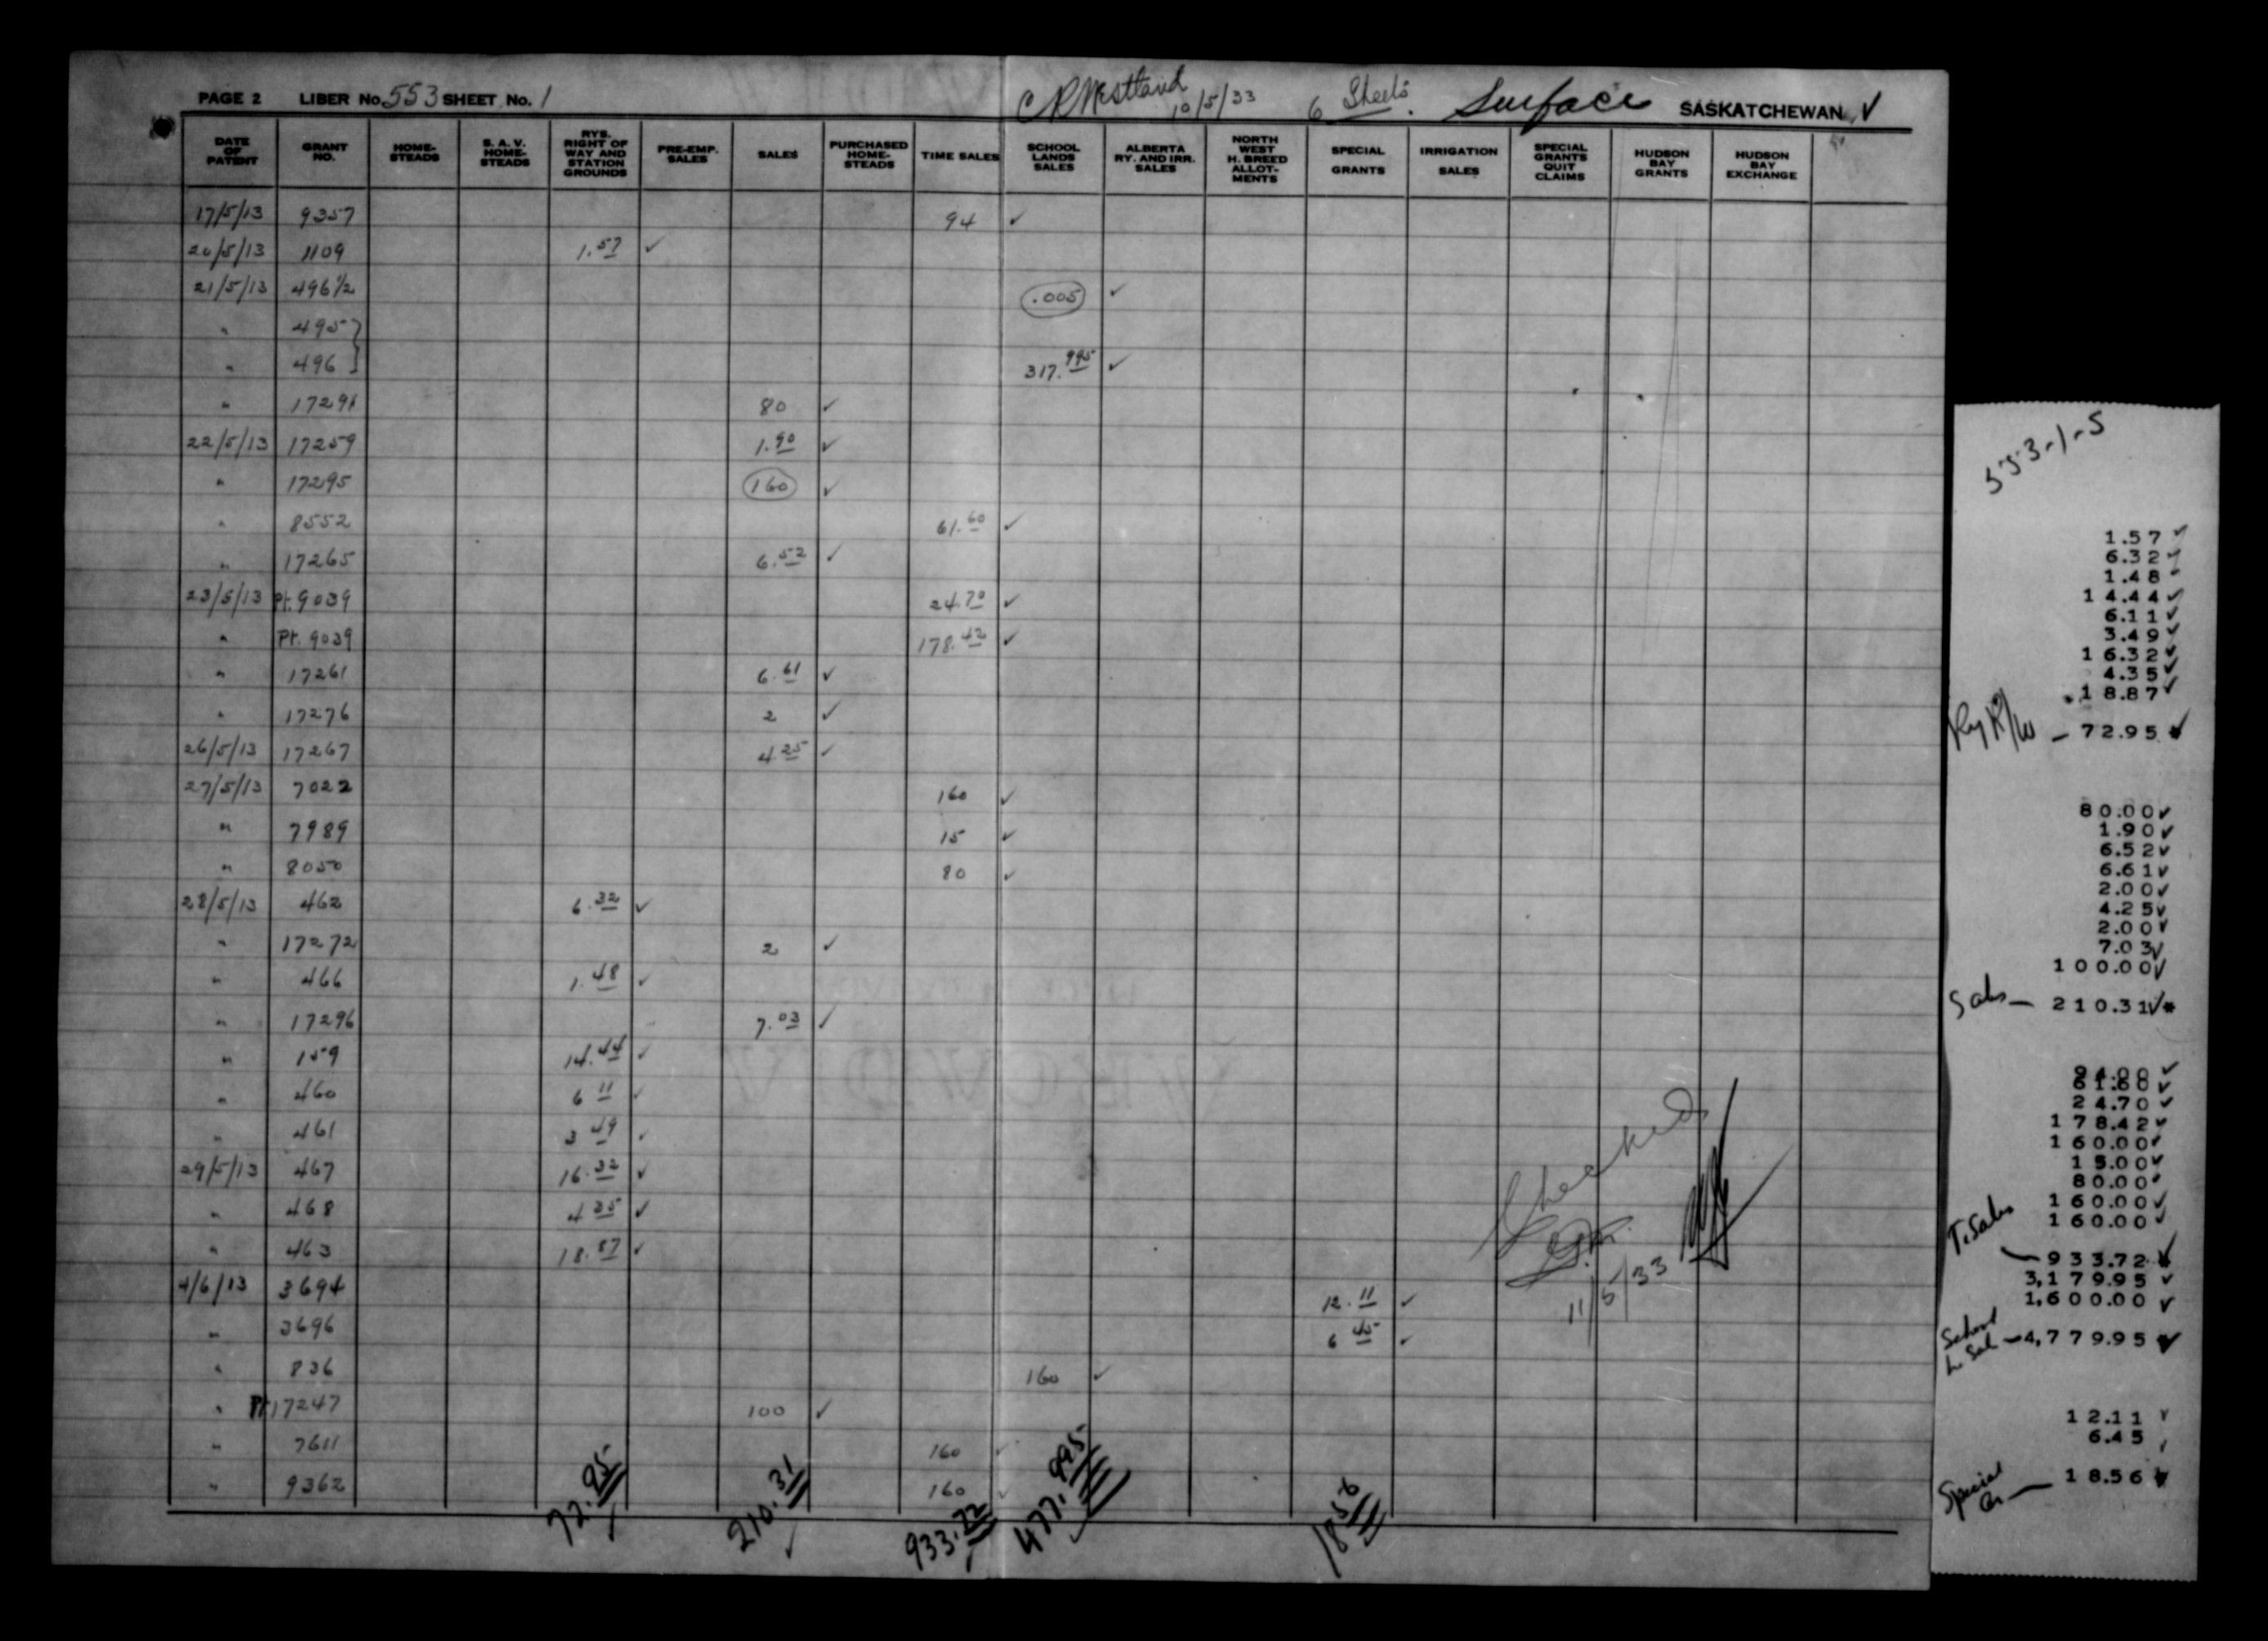 PAGE 2 LIBER No. 553 SHEET No. 1 C R Westland 10/5/33 6 Sheets. Surface SASKATCHEWAN ✓
DATE OF PATENT GRANT NO. HOME-STEADS S. A. V. HOME-STEADS RYS. RIGHT OF WAY AND STATION GROUNDS PRE-EMP. SALES SALES PURCHASED HOME-STEADS TIME SALES SCHOOL LANDS SALES ALBERTA RY. AND IRR. SALES NORTH WEST H. BREED ALLOT-MENTS SPECIAL GRANTS IRRIGATION SALES SPECIAL GRANTS QUIT CLAIMS HUDSON BAY GRANTS HUDSON BAY EXCHANGE
17/5/13 9357 94 ✓
20/5/13 1109 1.57 ✓
21/5/13 496½ .005 ✓
" 495 }
" 496 } 317.995 ✓
" 17291 80 ✓
22/5/13 17259 1.90 ✓
" 17295 160 ✓
" 8552 61.60 ✓
" 17265 6.52 ✓
23/5/13 Pt. 9039 24.70 ✓
" Pt. 9039 178.42 ✓
" 17261 6.61 ✓
" 17276 2 ✓
26/5/13 17267 4.25 ✓
27/5/13 7022 160 ✓
" 7989 15 ✓
" 8050 80 ✓
28/5/13 462 6.32 ✓
" 17272 2 ✓
" 466 1.48 ✓
" 17296 7.03 ✓
" 159 14.44 ✓
" 460 6 11 ✓
" 461 3 49 ✓
29/5/13 467 16.32 ✓
" 468 4 35 ✓
" 463 18.87 ✓
4/6/13 3694 12.11 ✓
" 3696 6 45 ✓
" 836 160 ✓
" Pt 17247 100 ✓
" 7611 160 ✓
" 9362 160 ✓
72.95 ✓ 210.31 ✓ 933.72 ✓ 477.995 ✓ 18 56
Checked
11/5/33
553-1-5
1.57 ✓
6.32 ✓
1.48
14.44 ✓
6.11 ✓
3.49 ✓
16.32 ✓
4.35 ✓
18.87 ✓
Ry R/W — 72.95 * ✓
80.00 ✓
1.90 ✓
6.52 ✓
6.61 ✓
2.00 ✓
4.25 ✓
2.00 ✓
7.03 ✓
100.00 ✓
Sales — 210.31 ✓ *
94.00 ✓
61.60 ✓
24.70 ✓
178.42 ✓
160.00 ✓
15.00 ✓
80.00
160.00 ✓
160.00 ✓
T. Sales — 933.72 * ✓
3,179.95 ✓
1,600.00 ✓
School L. Sal — 4,779.95 * ✓
12.11 ✓
6.45 ✓
Special Gr — 18.56 *